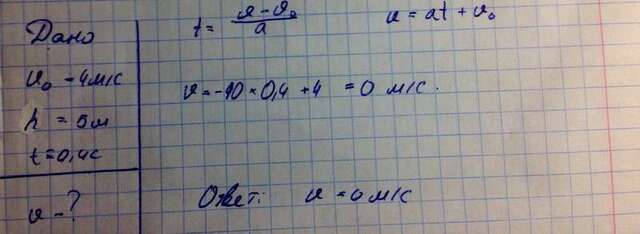 Дано
υ₀ - 4 м/с
h = 5 м
t = 0,4 с
υ - ?
t = (υ - υ₀) / a
υ = at + υ₀
υ = -10 × 0,4 + 4 = 0 м/с.
Ответ: υ = 0 м/с